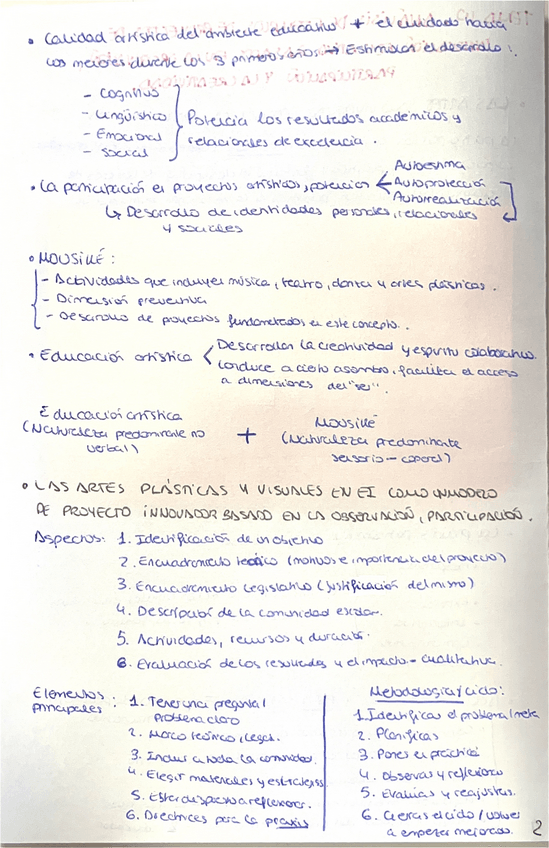 • Calidad artística del ambiente educativo + el cuidado hacia
los mejores durante los 3 primeros años. → Estimulan el desarrollo:
- Cognitivo
- Lingüístico
- Emocional
- Social
Potencia los resultados académicos y
relacionales de excelencia.
• La participación en proyectos artísticos, potencian
Autoestima
Autoprotección
Autorrealización
↳ Desarrollo de identidades personales, relacionales
y sociales
• MOUSIKÉ:
- Actividades que incluyen música, teatro, danza y artes plásticas.
- Dimensión preventiva
- Desarrollo de proyectos fundamentados en este concepto.
• Educación artística
Desarrollan la creatividad y espíritu colaborativo.
Conduce a cierto asombro, facilita el acceso
a dimensiones del "ser".
Educación artística
(Naturaleza predominante no
verbal)
+
Mousiké
(Naturaleza predominante
sensorio-corporal)
• LAS ARTES PLÁSTICAS Y VISUALES EN EI COMO UN MODELO
DE PROYECTO INNOVADOR BASADO EN LA OBSERVACIÓN, PARTICIPACIÓN.
Aspectos: 1. Identificación de un objetivo
2. Encuadramiento teórico (motivos e importancia del proyecto)
3. Encuadramiento legislativo (justificación del mismo)
4. Descripción de la comunidad escolar.
5. Actividades, recursos y duración.
6. Evaluación de los resultados y el impacto - cualitativa.
Elementos principales:
1. Tener una pregunta/
problema claro
2. Marco teórico, legal.
3. Incluir a toda la comunidad.
4. Elegir materiales y estrategias
5. Estar dispuesto a reflexionar.
6. Directrices para la praxis
Metodología/ciclo:
1. Identificas el problema/meta
2. Planificas
3. Pones en práctica
4. Observas y reflexionas
5. Evalúas y reajustas.
6. Cierras el ciclo / vuelves
a empezar mejorado.
2